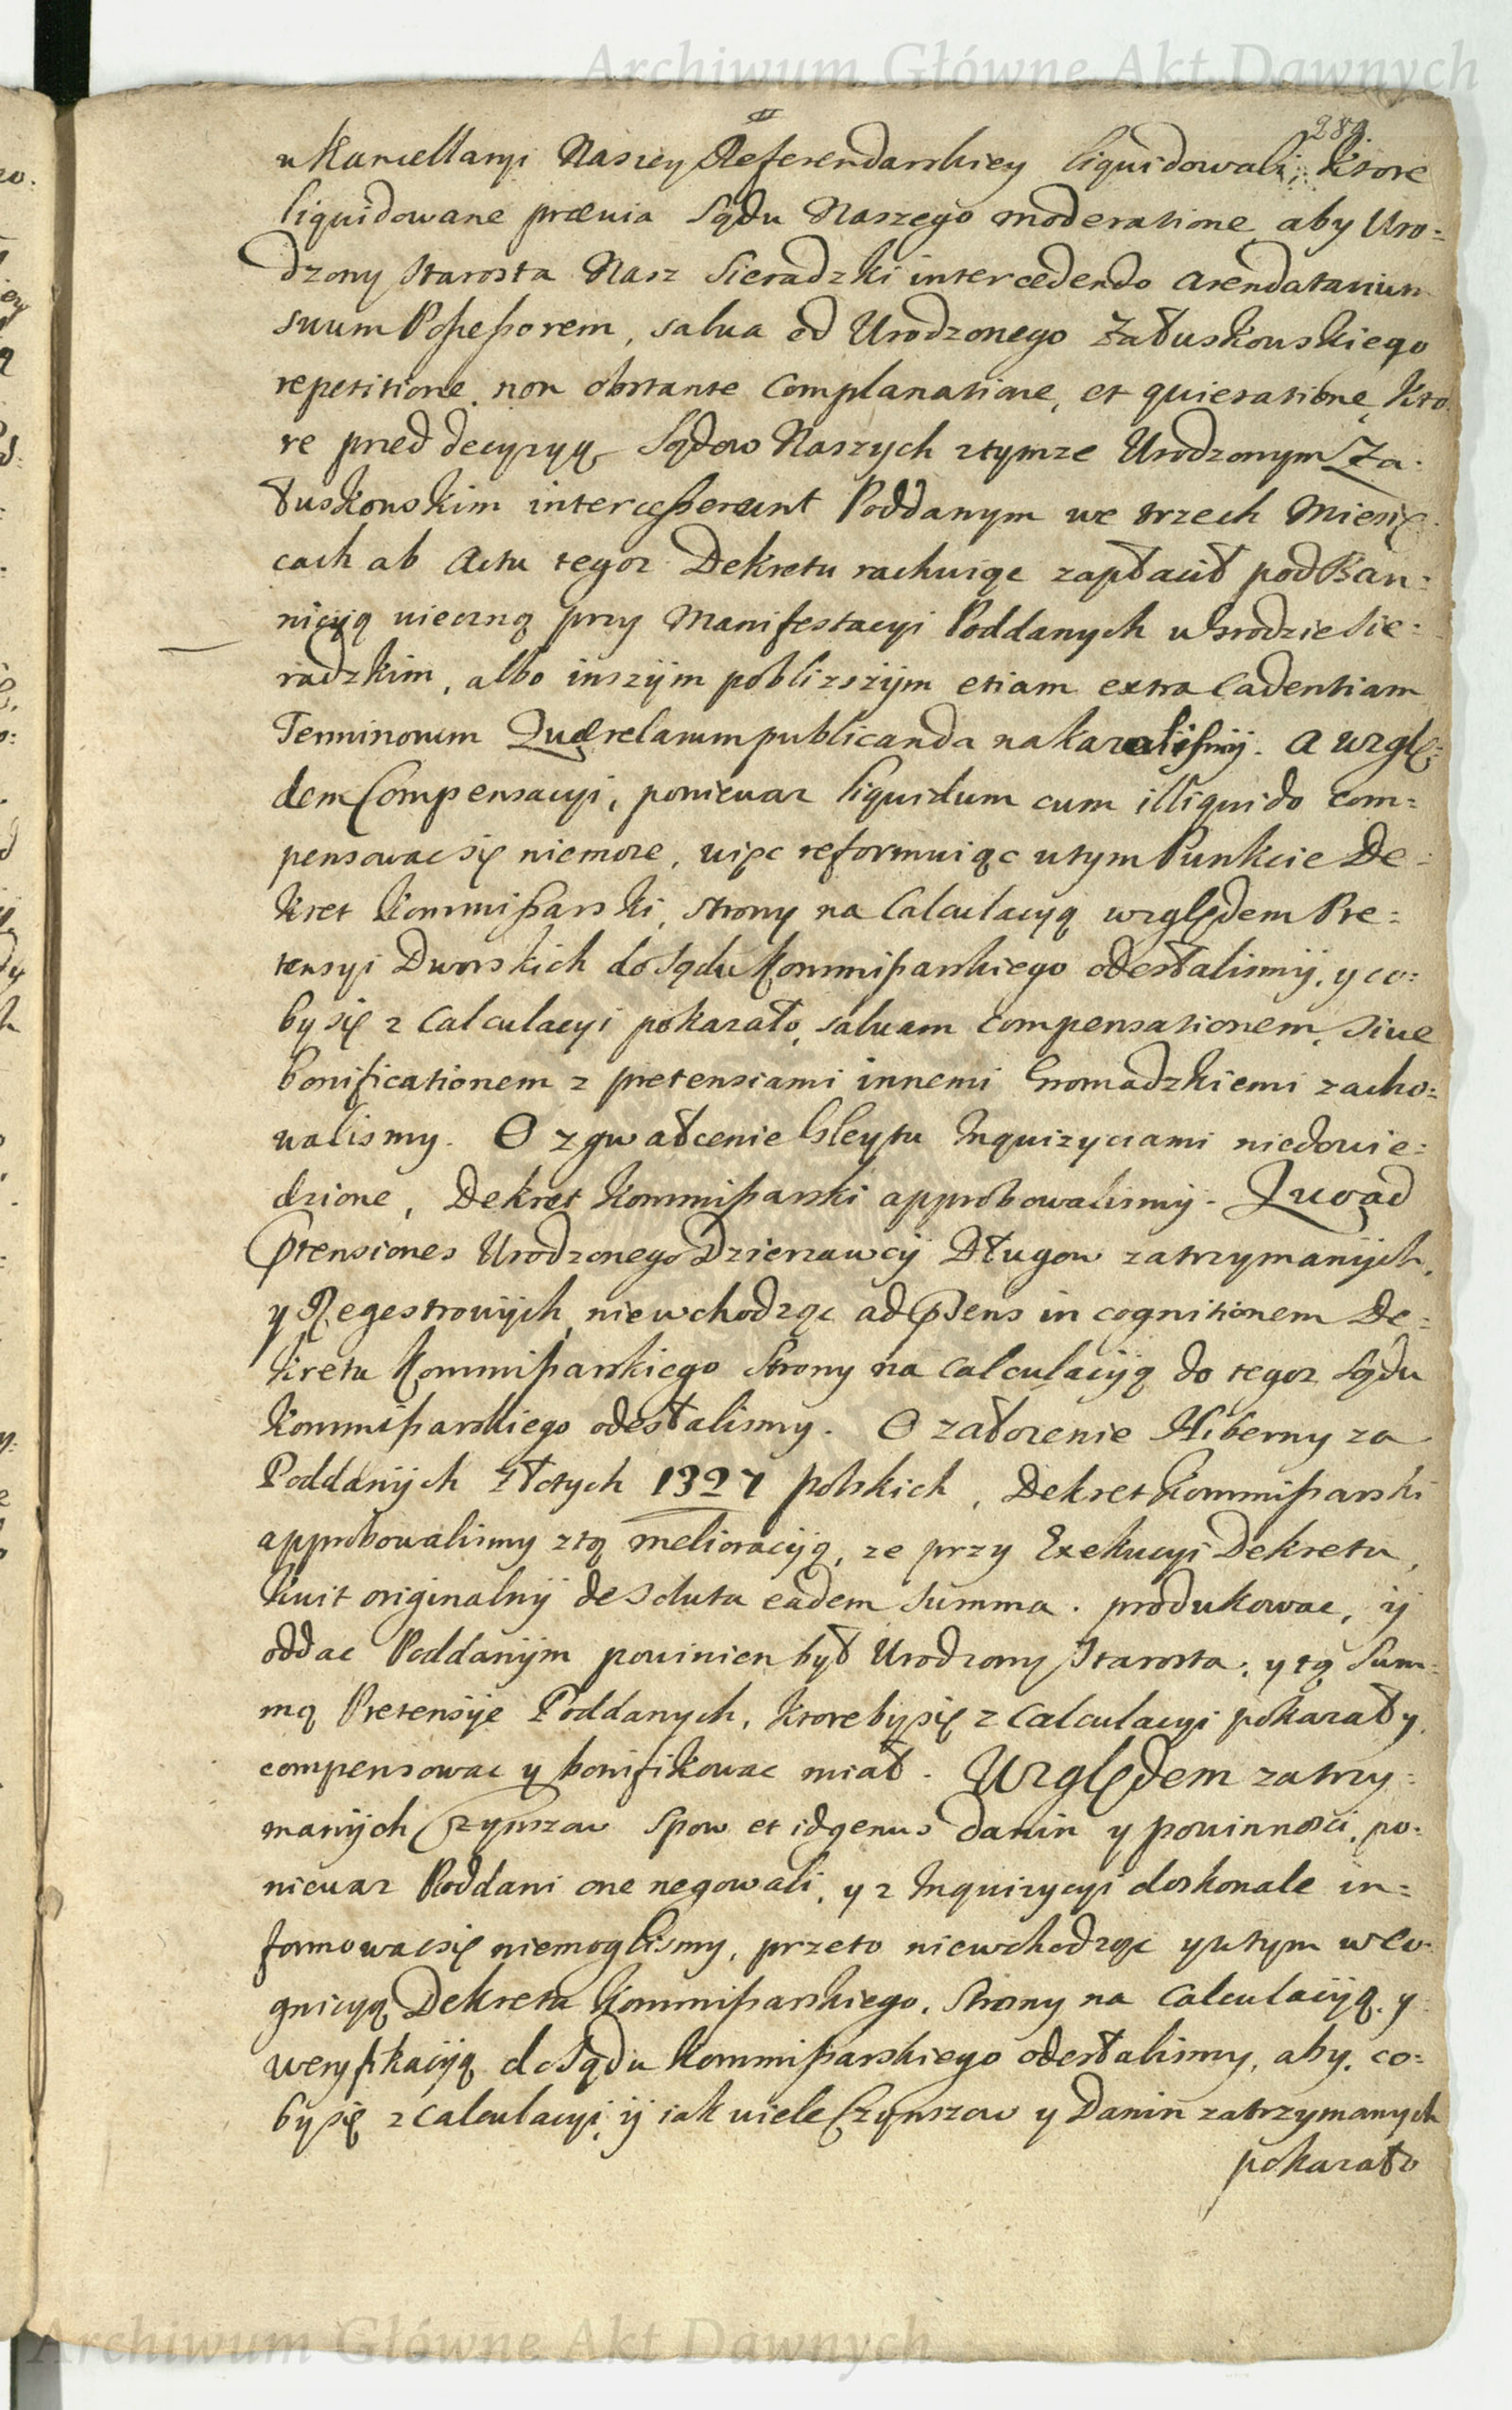 Archiwum Główne Akt Dawnych
289.
w Kancellaryi Naszey Referendarskiey liquidowali, ktore
liquidowane prævia Sądu Naszego moderatione, aby Uro=
dzony Starosta Nasz Sieradzki intercedendo arendatarium
suum Possessorem, salva od Urodzonego Załuskowskiego
repetitione, non obstante complanatione, et quietatione, kto
re pred decyzyą Sądow Naszych z tymze Urodzonym Za=
łuskowskim intercesserunt Poddanym we trzech Miesię=
cach ab actu tegoz Dekretu rachuiąc zapłacił pod Ban=
nicyą wieczną przy Manifestacyi Poddanych w Grodzie Sie=
radzkim, albo inszÿm poblizszÿm etiam extra Cadentiam
Terminorum Quærelarum publicanda nakazalismÿ. A wzglę=
dem Compensacyi, poniewaz liquidum cum illiquido com=
pensowac się niemoze, więc reformuiąc w tym Punkcie De=
kret Kommissarski, strony na Calculacyą względem Pre=
tensyi Dworskich do Sądu Kommissarskiego odesłalismÿ, y co=
by się z Calculacyi pokazało, salvam compensationem, sive
bonificationem z pretensiami innemi Gromadzkiemi zacho=
walismy. O zgwałcenie Gleytu Inquizyciami niedowie=
dzione, Dekret Kommissarski approbowalismÿ. Quoad
Ptensiones Urodzonego Dzierzawcÿ Długow zatrzymanÿch,
y Regestrowÿch, niewchodząc ad Psens in cognitionem De=
kretu Kommissarskiego Strony na calculacÿą do tegoz Sądu
Kommissarskiego odesłalismy. O załozenie Hiberny za
Poddanÿch złotych 1327 polskich, Dekret Kommissarski
approbowalismy z tą melioracÿą, ze przy Exekucyi Dekretu,
kwit originalnÿ de soluta eadem summa. produkowac, ÿ
oddac Poddanÿm powinien był Urodzony Starosta, y tą Sum=
mą Pretensÿe Poddanych, ktoreby się z Calculacyi pokazały,
compensowac y bonifikowac miał. Względem zatrzy=
manÿch Czynszow Spow et id genus danin y powinnosci, po=
niewaz Poddani one negowali, y z Inquizycyi doskonale in=
formowac się niemoglismy, przeto niewchodząc y w tym w co=
gnicyą Dekretu Kommissarskiego, Strony na Calculacÿą, y
weryfikacÿą do Sądu Kommissarskiego odesłalismy, aby, co=
by się z Calculacyi, ÿ iak wiele Czynszow y Danin zatrzymanych
pokazało
Archiwum Główne Akt Dawnych